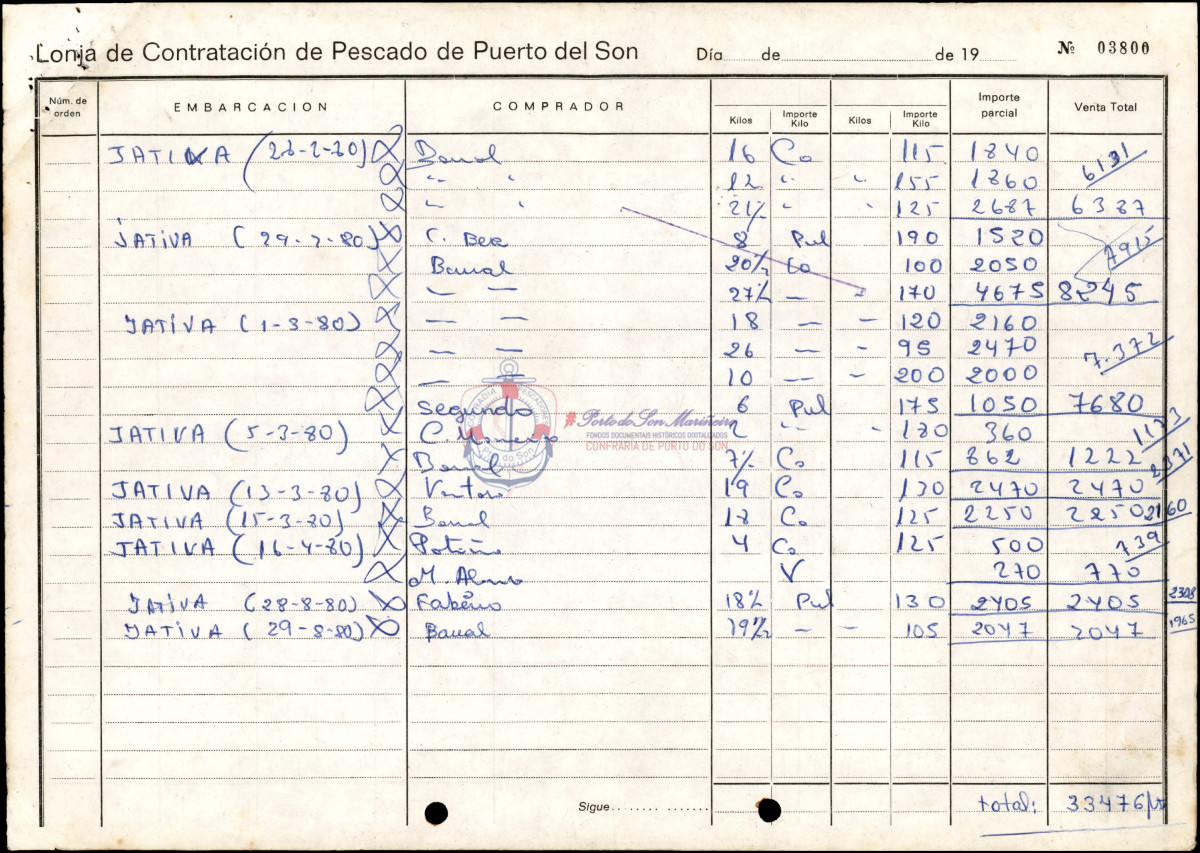 Lonja de Contratación de Pescado de Puerto del Son Día de de 19 Nº 03800
Núm. de orden EMBARCACION COMPRADOR Kilos Importe Kilo Kilos Importe Kilo Importe parcial Venta Total
JATIVA ( -80) 16 Co 115 1840
" " 12 " " 155 1860 6131
" " 21½ " " 125 2687 6387
JATIVA (29-2-80) C. 8 Pul 190 1520
20½ Co 100 2050 7915
— — 27½ — " 170 4675 8245
JATIVA (1-3-80) — — 18 — — 120 2160
— — 26 — — 95 2470
— — 10 — — 200 2000 7.372
Segundo 6 Pul 175 1050 7680
JATIVA (5-3-80) C. 2 " " 180 360 1173
7½ Co 115 862 1222
JATIVA (13-3-80) 19 Co 130 2470 2470 2371
JATIVA (15-3-80) 18 Co 125 2250 2250 2160
JATIVA (16-4-80) 4 Co 125 500 739
M. V 270 770
JATIVA (28-8-80) 18½ Pul 130 2405 2405 2308
JATIVA (29-8-80) 19½ — — 105 2047 2047 1965
# Porto do Son Mariñeiro
FONDOS DOCUMENTAIS HISTÓRICOS DIXITALIZADOS
CONFRARÍA DE PORTO DO SON
Sigue total: 33476